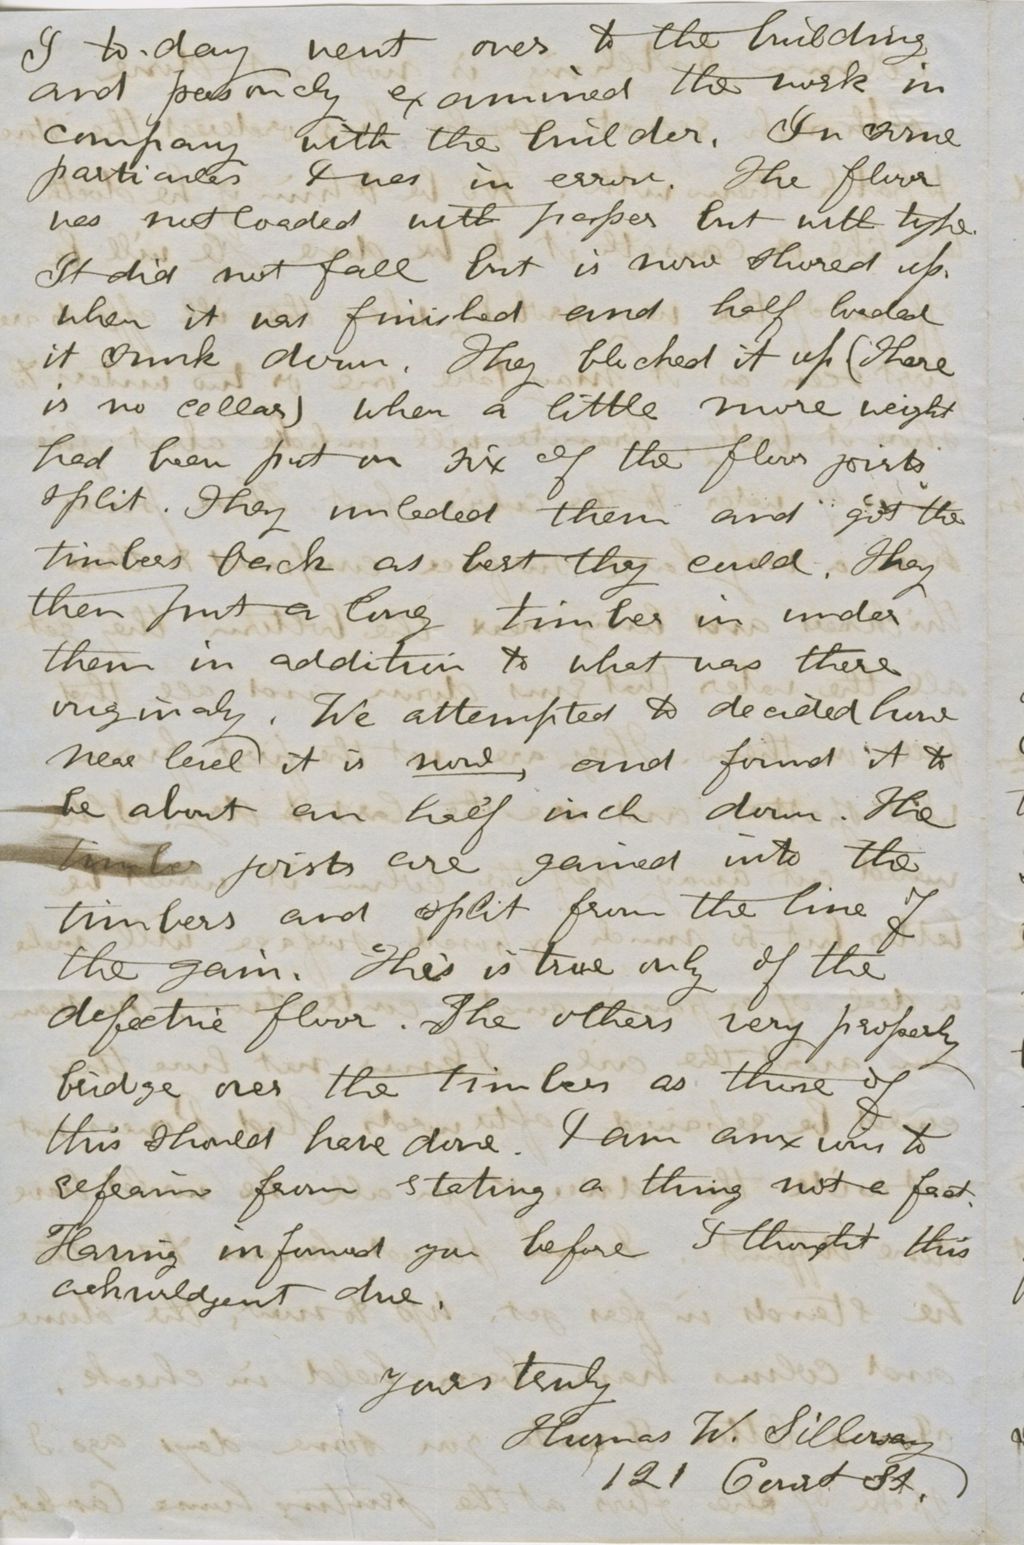 I to-day went over to the building
and personaly examined the work in
company with the builder. In some
particulars I was in error. The floor
was not loaded with paper but with type.
It did not fall but is now shored up.
when it was finished and half loaded
it sunk down. They blocked it up (there
is no cellar) when a little more weight
had been put on six of the floor joists
split. They unloded them and "got" the
timbers back as best they could. They
then put a long timber in under
them in addition to what was there
originaly. We attempted to decided how
near level it is now, and found it to
be about an half inch down. The
timber joists are gained into the
timbers and split from the line of
the gain. This is true only of the
defective floor. The others very properly
bridge over the timbers as those of
this should have done. I am anxious to
refrain from stating a thing not a fact.
Having informed you before I thought this
acknowldgent due.
Yours truly
Thomas W. Silloway
121 Court St.